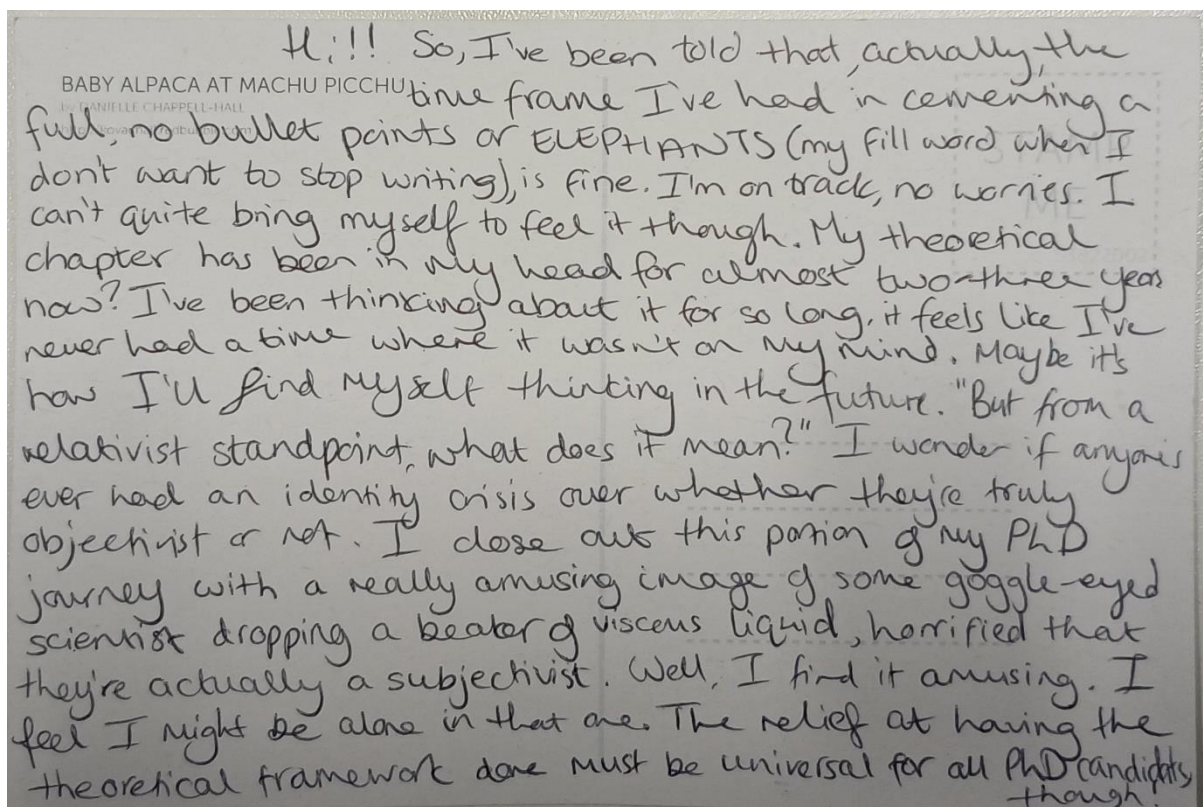 Hi!!! So, I've been told that, actually, the
BABY ALPACA AT MACHU PICCHU
time frame I've had in cementing a
by DANIELLE CHAPPELL-HALL
full, no bullet points or ELEPHANTS (my fill word when I
don't want to stop writing), is fine. I'm on track, no worries. I
can't quite bring myself to feel it though. My theoretical
chapter has been in my head for almost two-three years
now? I've been thinking about it for so long, it feels like I've
never had a time where it wasn't on my mind. Maybe it's
how I'll find myself thinking in the future. "But from a
relativist standpoint, what does it mean?" I wonder if anyone's
ever had an identity crisis over whether they're truly
objectivist or not. I close out this portion of my PhD
journey with a really amusing image of some goggle-eyed
scientist dropping a beaker of viscous liquid, horrified that
they're actually a subjectivist. Well, I find it amusing. I
feel I might be alone in that one. The relief at having the
theoretical framework done must be universal for all PhD candidates,
though